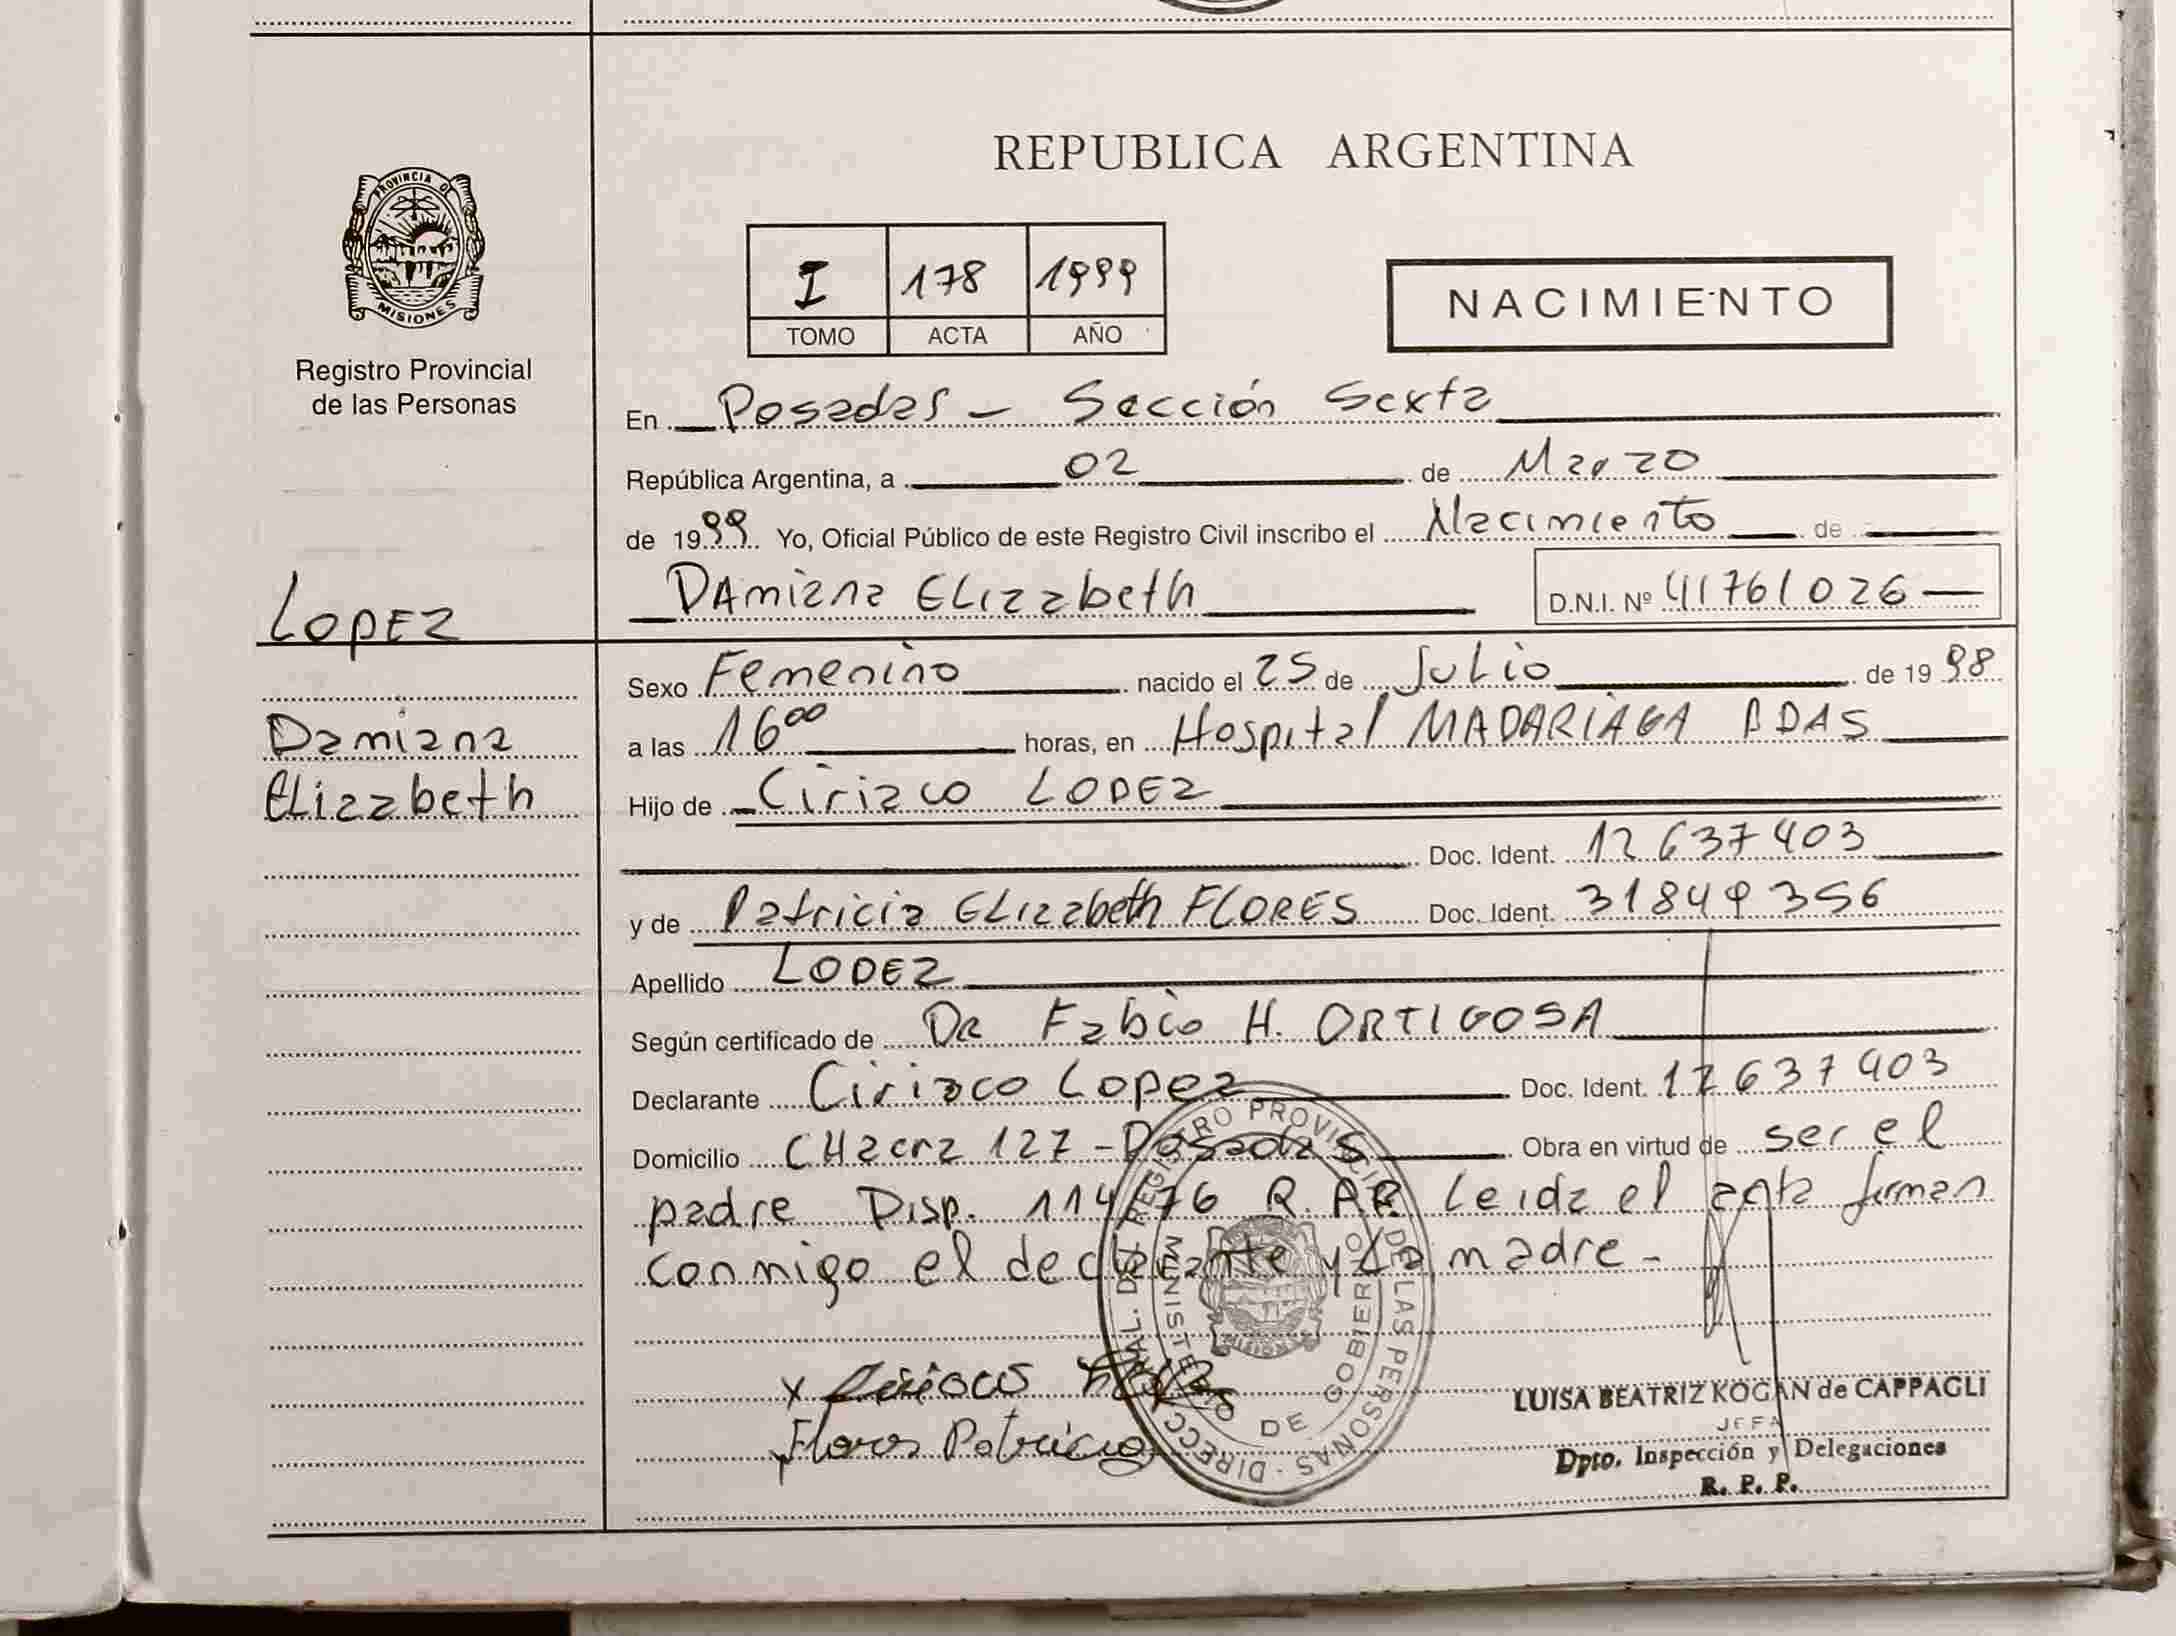 PROVINCIA DE
MISIONES
Registro Provincial
de las Personas
LOPEZ
Damiana
Elizabeth
REPUBLICA ARGENTINA
I 178 1999
TOMO ACTA AÑO
NACIMIENTO
En Posadas - Sección Sexta
República Argentina, a 02 de Marzo
de 1999 Yo, Oficial Público de este Registro Civil inscribo el Nacimiento de
DAmiana Elizabeth D.N.I. Nº 41761026
Sexo Femenino nacido el 25 de Julio de 1998
a las 16⁰⁰ horas, en Hospital MADARIAGA PDAS
Hijo de Ciriaco LOPEZ
Doc. Ident. 12637403
y de Patricia Elizabeth FLORES Doc. Ident. 31849356
Apellido LOPEZ
Según certificado de DR Fabio H. ORTIGOSA
Declarante Ciriaco Lopez Doc. Ident. 12637403
Domicilio CHacra 127 - Posadas Obra en virtud de ser el
padre Disp. 114/76 R. Leida el acta firman
conmigo el declarante y la madre -
x Ciriaco
Flores Patricia
DIRECC. GRAL. DEL REGISTRO PROVINCIAL DE LAS PERSONAS
MINISTERIO DE GOBIERNO
MISIONES
LUISA BEATRIZ KOGAN de CAPPAGLI
JEFA
Dpto. Inspección y Delegaciones
R. P. P.